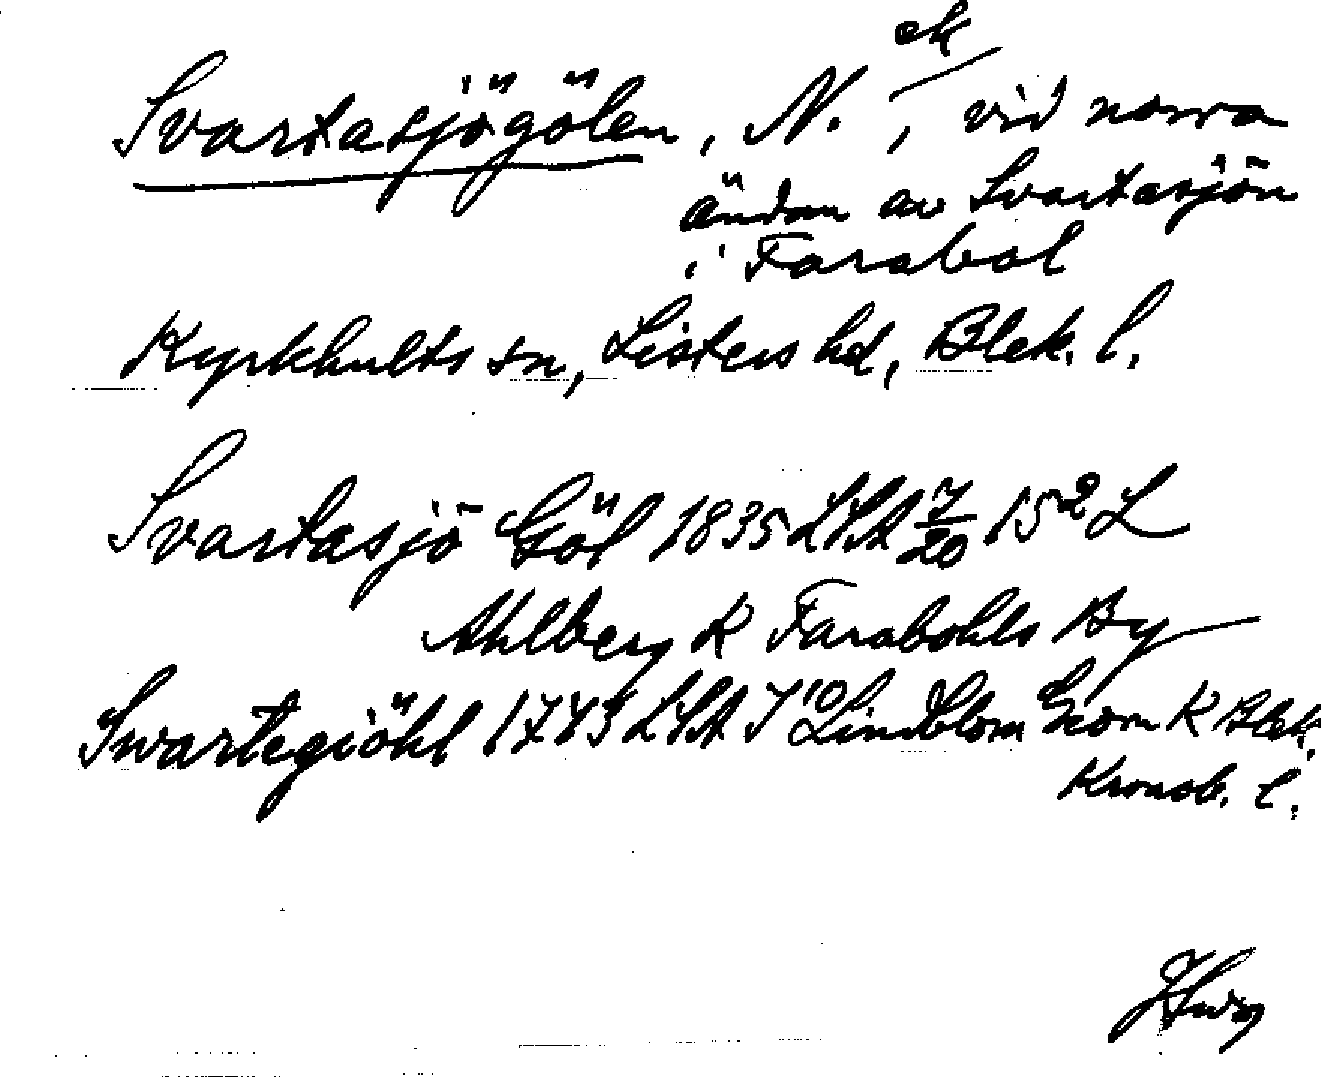 ek
Svartasjögölen, N., vid norra
ändan av Svartasjön
i Farabol
Kyrkhults sn, Listers hd, Blek. l.
Svartasjö Göl 1835 LSA 7/20 15² L
Ahlberg K Farabohls By
Swartegiöhl 1743 LSA J10 Lindblom Geom K Blek.
Kronob. l.